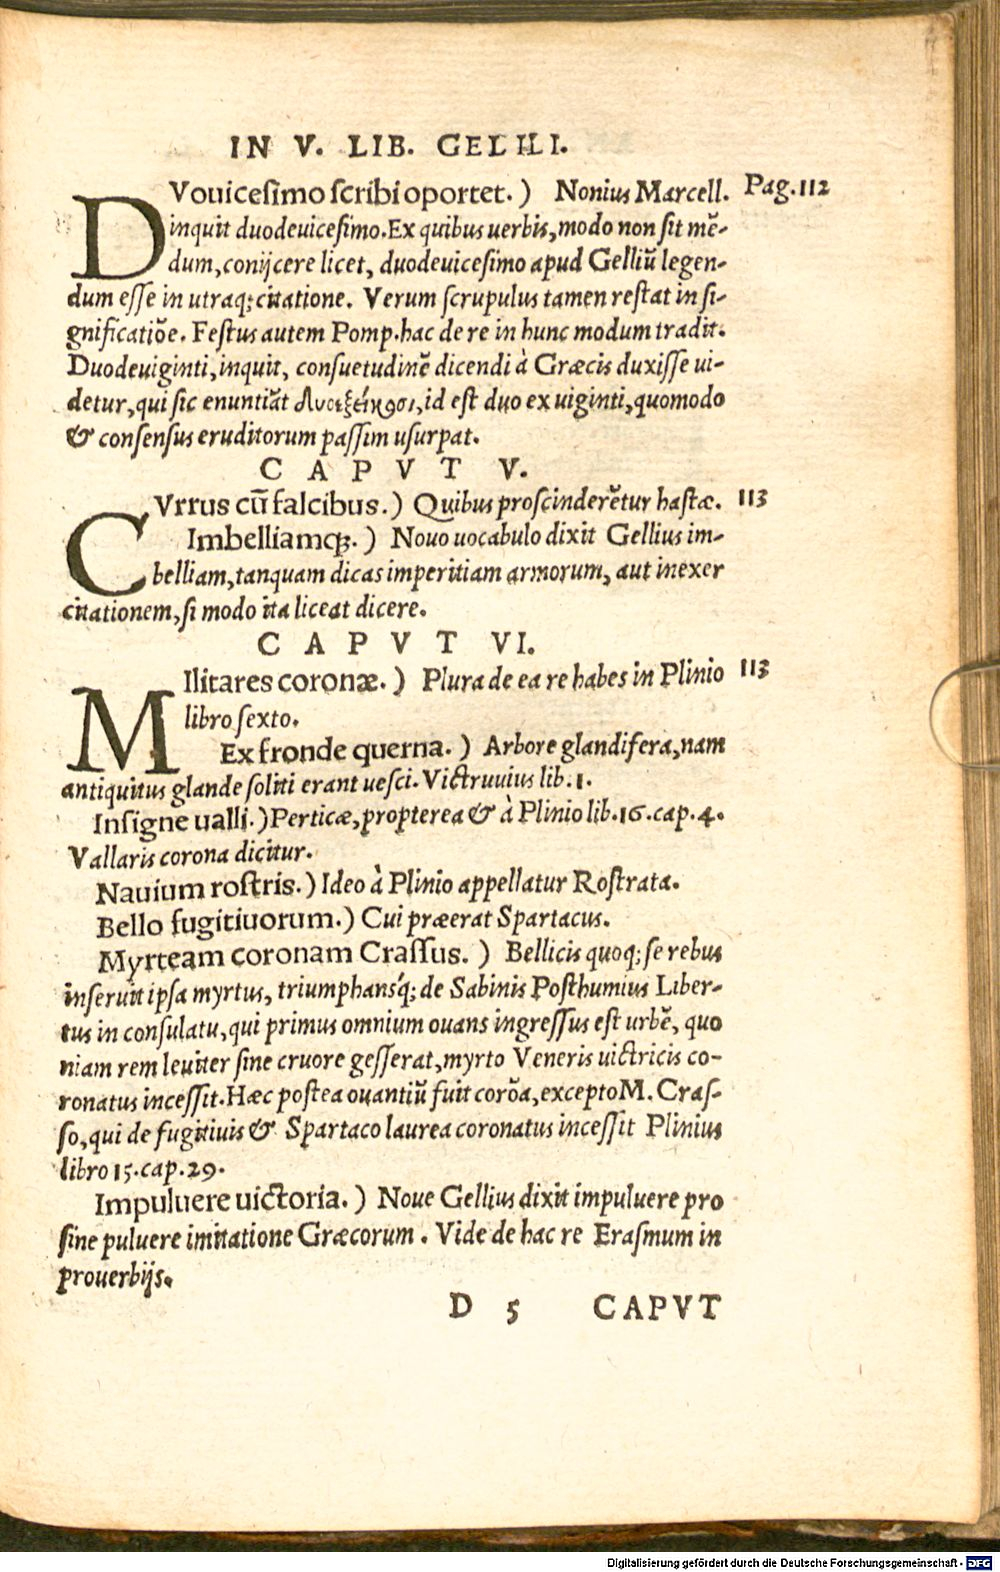 IN V. LIB. GELLII.
DVouicesimo scribi oportet.) Nonius Marcell. Pag.112
inquit duodeuicesimo. Ex quibus uerbis, modo non sit mẽ-
dum, conijcere licet, duodeuicesimo apud Gelliũ legen-
dum esse in utraq; citatione. Verum scrupulus tamen restat in si-
gnificatiõe. Festus autem Pomp. hac de re in hunc modum tradit.
Duodeuiginti, inquit, consuetudinẽ dicendi à Græcis duxisse ui-
detur, qui sic enuntiãt δυοεξείκοσι, id est duo ex uiginti, quomodo
& consensus eruditorum passim usurpat.
CAPVT V.
CVrrus cũ falcibus.) Quibus proscinderẽtur hastæ. 113
Imbelliamq;.) Nouo uocabulo dixit Gellius im-
belliam, tanquam dicas imperitiam armorum, aut inexer
citationem, si modo ita liceat dicere.
CAPVT VI.
MIlitares coronæ.) Plura de ea re habes in Plinio 113
libro sexto.
Ex fronde querna.) Arbore glandifera, nam
antiquitus glande soliti erant uesci. Victruuius lib.1.
Insigne ualli.) Perticæ, propterea & à Plinio lib.16.cap.4.
Vallaris corona dicitur.
Nauium rostris.) Ideo à Plinio appellatur Rostrata.
Bello fugitiuorum.) Cui præerat Spartacus.
Myrteam coronam Crassus.) Bellicis quoq; se rebus
inseruit ipsa myrtus, triumphansq́; de Sabinis Posthumius Liber-
tus in consulatu, qui primus omnium ouans ingressus est urbẽ, quo
niam rem leuiter sine cruore gesserat, myrto Veneris uictricis co-
ronatus incessit. Hæc postea ouantiũ fuit corõa, excepto M. Cras-
so, qui de fugitiuis & Spartaco laurea coronatus incessit Plinius
libro 15.cap.29.
Impuluere uictoria.) Noue Gellius dixit impuluere pro
sine puluere imitatione Græcorum. Vide de hac re Erasmum in
prouerbijs.
D 5 CAPVT
Digitalisierung gefördert durch die Deutsche Forschungsgemeinschaft - DFG